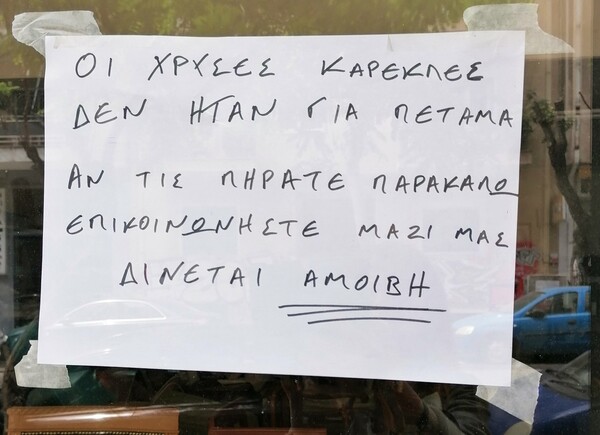 ΟΙ ΧΡΥΣΕΣ ΚΑΡΕΚΛΕΣ
ΔΕΝ ΗΤΑΝ ΓΙΑ ΠΕΤΑΜΑ
ΑΝ ΤΙΣ ΠΗΡΑΤΕ ΠΑΡΑΚΑΛΩ
ΕΠΙΚΟΙΝΩΝΗΣΤΕ ΜΑΖΙ ΜΑΣ
ΔΙΝΕΤΑΙ ΑΜΟΙΒΗ